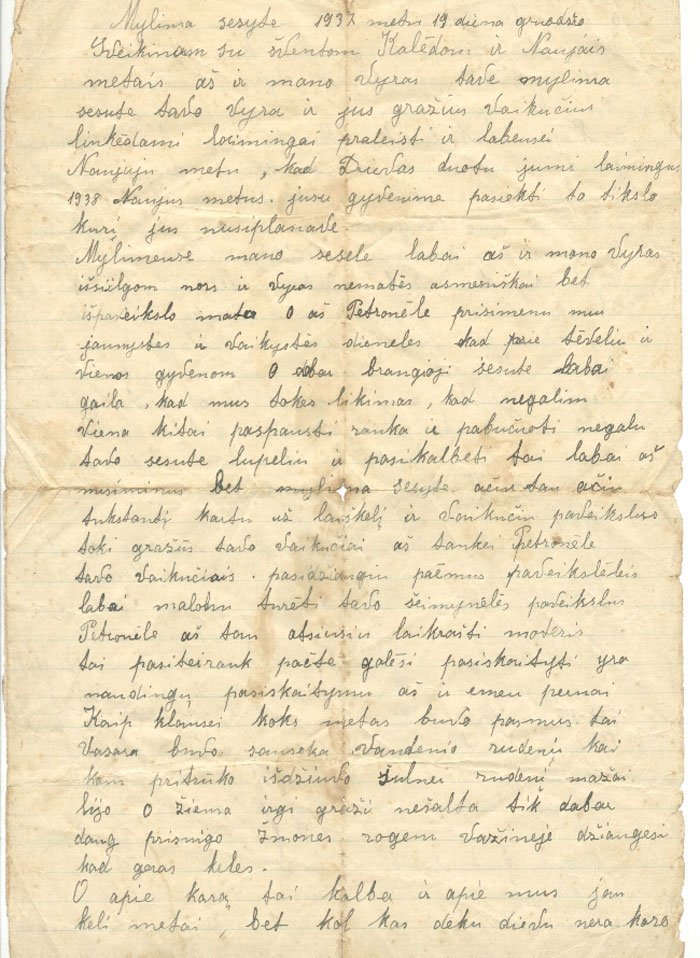 Mylima sesyte 1937 metu 19 diena gruodžio
Sveikinam su šventom Kalėdom ir Naujais
metais aš ir mano vyras tave mylima
sesute tavo vyra ir jus gražius vaikučius
linkėdami laimingai praleisti ir labensei
Naujuju metu, kad Dievas duotu jumi laimingus
1938 Naujus metus. jusu gyvenime pasiekti to tikslo
kurį jus nusiplanave.
Mylimeuse mano sesele labai aš ir mano vyras
išsiilgom nors ir vyras nematęs asmeniškai bet
išpaveikslo mato O aš Petronėle prisimenu mus
jaunystes ir vaikystės dieneles kad prie tėveliu ir
vienos gyvenom O dbar brangioji sesute labai
gaila, kad mus tokes likimas, kad negalim
viena kitai paspausti ranka ir pabučuoti negalu
tavo sesute lupeliu ir pasikalbėti tai labai aš
bet mylima sesyte ačiu tau ačiu
tukstantį kartu už laiškelį ir vaikučiu paveikslus
toki gražūs tavo vaikučiai aš tankei Petronėle
tavo vaikučiais. pasidžiangiu paėmus paveikslėlius
labai malohu turėti tavo šeimynėlės paveikslus
Petronėle aš tau atsiusiu laikrašti moteris
tai pasiteirauk pačte galėsi pasiskaityti yra
naudingų pasiskaitymu aš ir emeu pernai
Kaip klausei koks metas buvo pasmus tai
Vasara buvo sauseka. Vandenio rudenį kai
kam pritrūko išdžiuvo šulnei rudenį mažai
lijo O žiema irgi graži nešalta tik dabar
daug prisnigo žmones rogem važineje džiangesi
kad geras keles.
O apie karą tai kalba ir apie mus jau
keli metai, bet kol kas dėku dievu nera karo